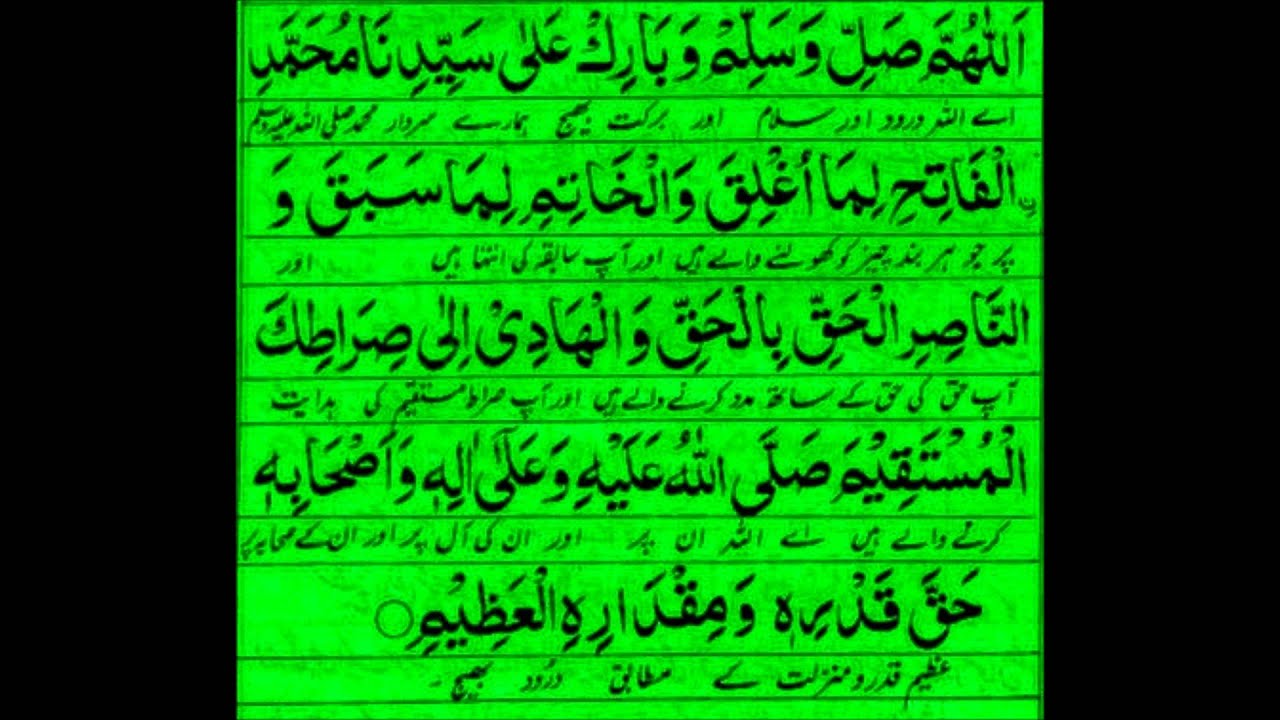 اَللّٰهُمَّ صَلِّ وَسَلِّمْ وَبَارِكْ عَلٰى سَيِّدِنَا مُحَمَّدِ
اے اللہ درود اور سلام اور برکت بھیج ہمارے سردار محمد صلی اللہ علیہ وسلم
نِ الْفَاتِحِ لِمَا اُغْلِقَ وَالْخَاتِمِ لِمَا سَبَقَ وَ
پر جو ہر بند چیز کو کھولنے والے ہیں اور آپ سابقہ کی انتہا ہیں اور
النَّاصِرِ الْحَقِّ بِالْحَقِّ وَالْهَادِىْ اِلٰى صِرَاطِكَ
آپ حق کی حق کے ساتھ مدد کرنے والے ہیں اور آپ صراط مستقیم کی ہدایت
الْمُسْتَقِيْمَ صَلَّى اللّٰهُ عَلَيْهِ وَعَلٰٓى اٰلِهٖ وَاَصْحَابِهٖ
کرنے والے ہیں اے اللہ ان پر اور ان کی آل پر اور ان کے صحابہ پر
حَقَّ قَدْرِهٖ وَمِقْدَارِهِ الْعَظِيْمِ
عظیم قدر و منزلت کے مطابق درُود بھیج ۔